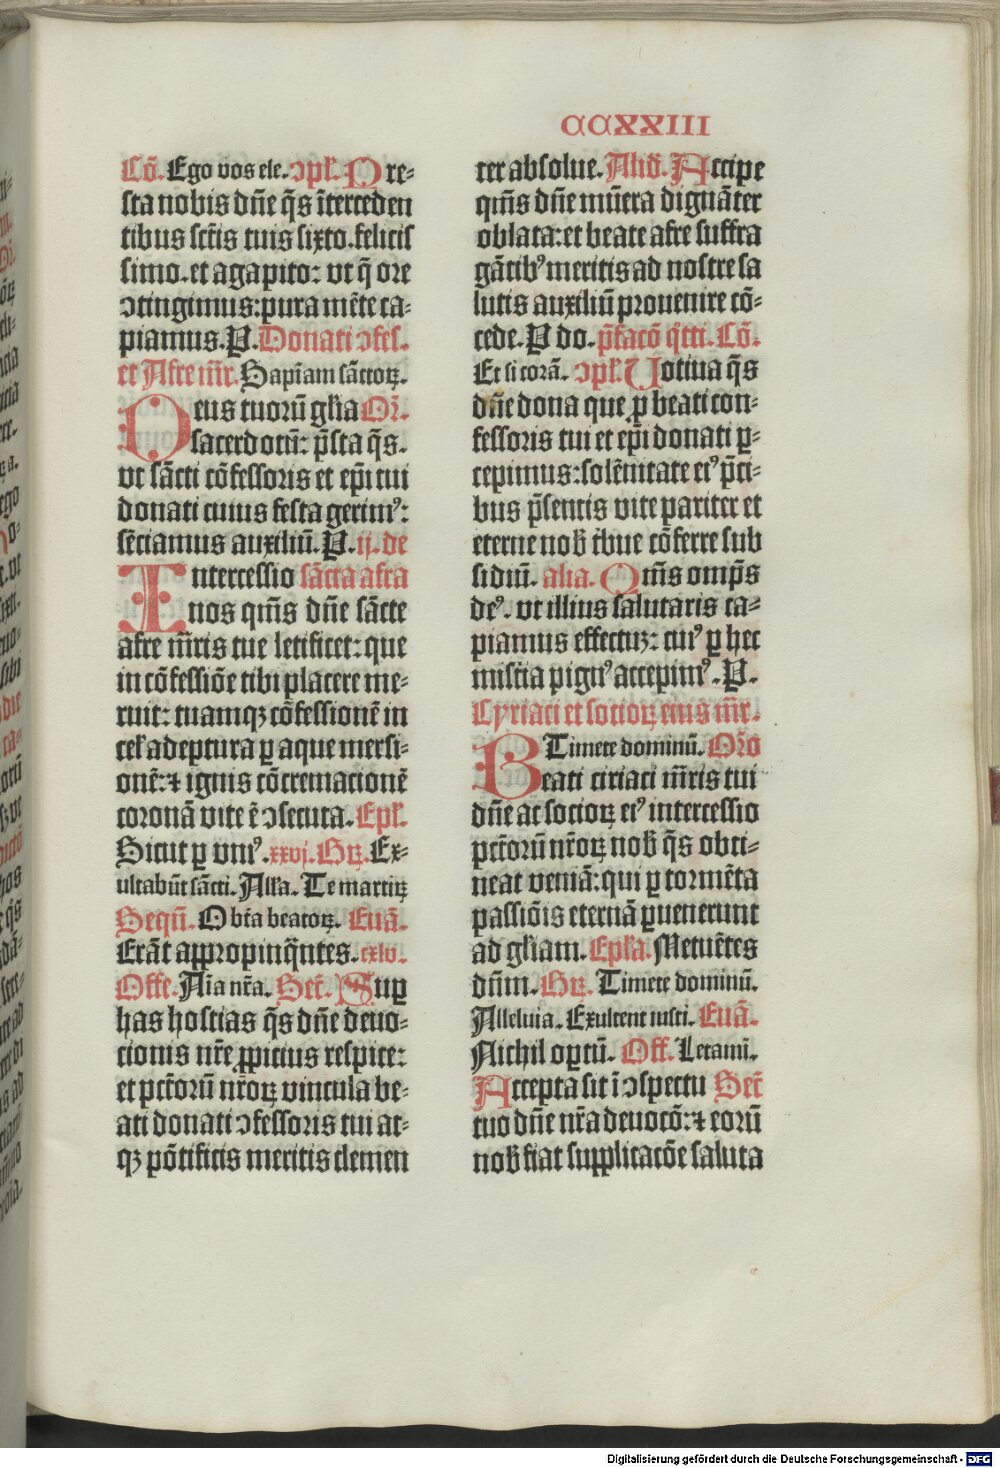 CCXXIII
Cō. Ego vos ele. ↄpl'. Pre-
sta nobis dn̄e q̄s īterceden
tibus sct̄is tuis sixto. felicis
simo. et agapito: vt q̄ ore
ↄtingimus: pura mēte ca-
piamus. P. Donati ↄfes.
et Afre mr̄. Sapīam sāctoꝝ.
Deus tuorū gl'ia Or̄.
sacerdotū: p̄sta q̄s.
vt sācti cōfessoris et ep̄i tui
donati cuius festa gerimꝰ:
sēciamus auxiliū. P. ij. de
Intercessio sācta afra
nos qm̄s dn̄e sācte
afre mr̄is tue letificet: que
in cōfessiōe tibi placere me-
ruit: tuamqꝫ cōfessionē in
cel' adeptura ꝑ aque mersi-
onē: ⁊ ignis cōcremacionē
coronā vite ē ↄsecuta. Epl'.
Sicut ꝑ vniꝰ. xxvj. Gꝝ. Ex-
ultabūt sācti. All'a. Te martiꝝ
Sequē. O bt̄a beatoꝝ. Euā.
Erāt appropinq̄ntes. cxlv.
Offe. Aīa nr̄a. Secr̄. Suꝑ
has hostias q̄s dn̄e deuo-
tionis nr̄e ꝓpicius respice:
et pctōrū nr̄oꝝ vincula be-
ati donati ↄfessoris tui at-
qꝫ pōtificis meritis clemen
ter absolue. Aliud. Accipe
qm̄s dn̄e mūera dignāter
oblata: et beate afre suffra
gātibꝰ meritis ad nostre sa
lutis auxiliū prouenire cō-
cede. P do. p̄facō q̄tti. Cō.
Et si corā. ↄpl'. Uotiua q̄s
dn̄e dona que ꝑ beati con-
fessoris tui et ep̄i donati ꝑ-
cepimus: solēnitate eiꝰ p̄ci-
bus p̄sentis vite pariter et
eterne nob̄ t'bue cōferre sub
sidiū. alia. Qm̄s omp̄s
deꝰ. vt illius salutaris ca-
piamus effectuꝫ: cuiꝰ ꝑ hec
mist̄ia pignꝰ accepimꝰ. P.
Cyriaci et socioꝝ eius mr̄.
Timete dominū. Or̄o
Beati ciriaci mr̄is tui
dn̄e ac socioꝝ eiꝰ intercessio
pctōrū nr̄oꝝ nob̄ q̄s obti-
neat veniā: qui ꝑ tormēta
passiōis eternā ꝑuenerunt
ad gl'iam. Epl'a. Metuētes
dn̄m. Gꝝ. Timete dominū.
Alleluia. Exultent iusti. Euā.
Nichil optū. Off. Letamī.
Accepta sit ī ↄspectu Secr̄
tuo dn̄e nr̄a deuocō: ⁊ eorū
nob̄ fiat supplicacōe saluta
Digitalisierung gefördert durch die Deutsche Forschungsgemeinschaft - DFG